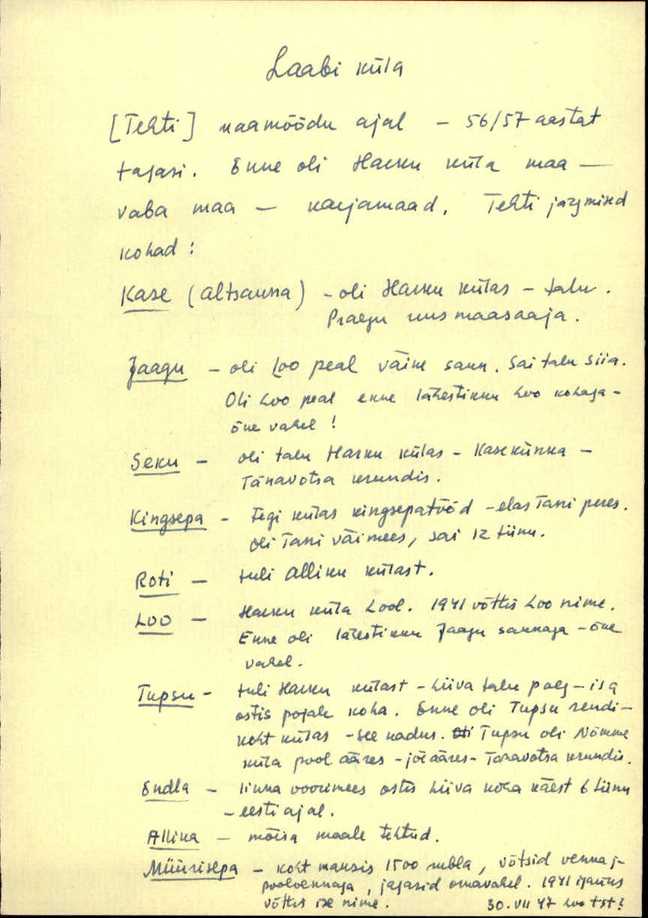 Laabi küla
[Tehti] maamõõdu ajal – 56/57 aastat
tagasi. Enne oli Harku küla maa –
vaba maa – karjamaad. Tehti järgmised
kohad:
Kase (Altsauna) – oli Harku külas – talu.
Praegu uusmaasaaja.
Jaagu – oli Loo peal väike saun. Sai talu siia.
Oli Loo peal enne lähestikku Loo kohaga –
õue vahel!
Seku – oli talu Harku külas – Kasekünka –
Tänavotsa krundis.
Kingsepa – Tegi külas kingsepatööd – elas Tani peres.
Oli Tani väimees, sai 12 tiinu.
Roti – tuli Alliku külast.
Loo – Harku küla Lool. 1941 võttis Loo nime.
Enne oli lähestikku Jaagu saunaga – õue
vahel.
Tupsu – tuli Harku külast – Liiva talu poeg – isa
ostis pojale koha. Enne oli Tupsu rendi-
koht külas – see kadus. Tupsu oli Nõmme
küla pool ääres – jõe ääres – Tänavotsa krundis.
Endla – linna voorimees ostis Liiva koha käest 6 tiinu
– eesti ajal.
Allika – mõisa maale tehtud.
Müürisepa – koht maksis 1500 rubla, võtsid vennaj-
poolvennaga, jagasid omavahel. 1941 igaüks
võttis ise nime. 30. VII 47